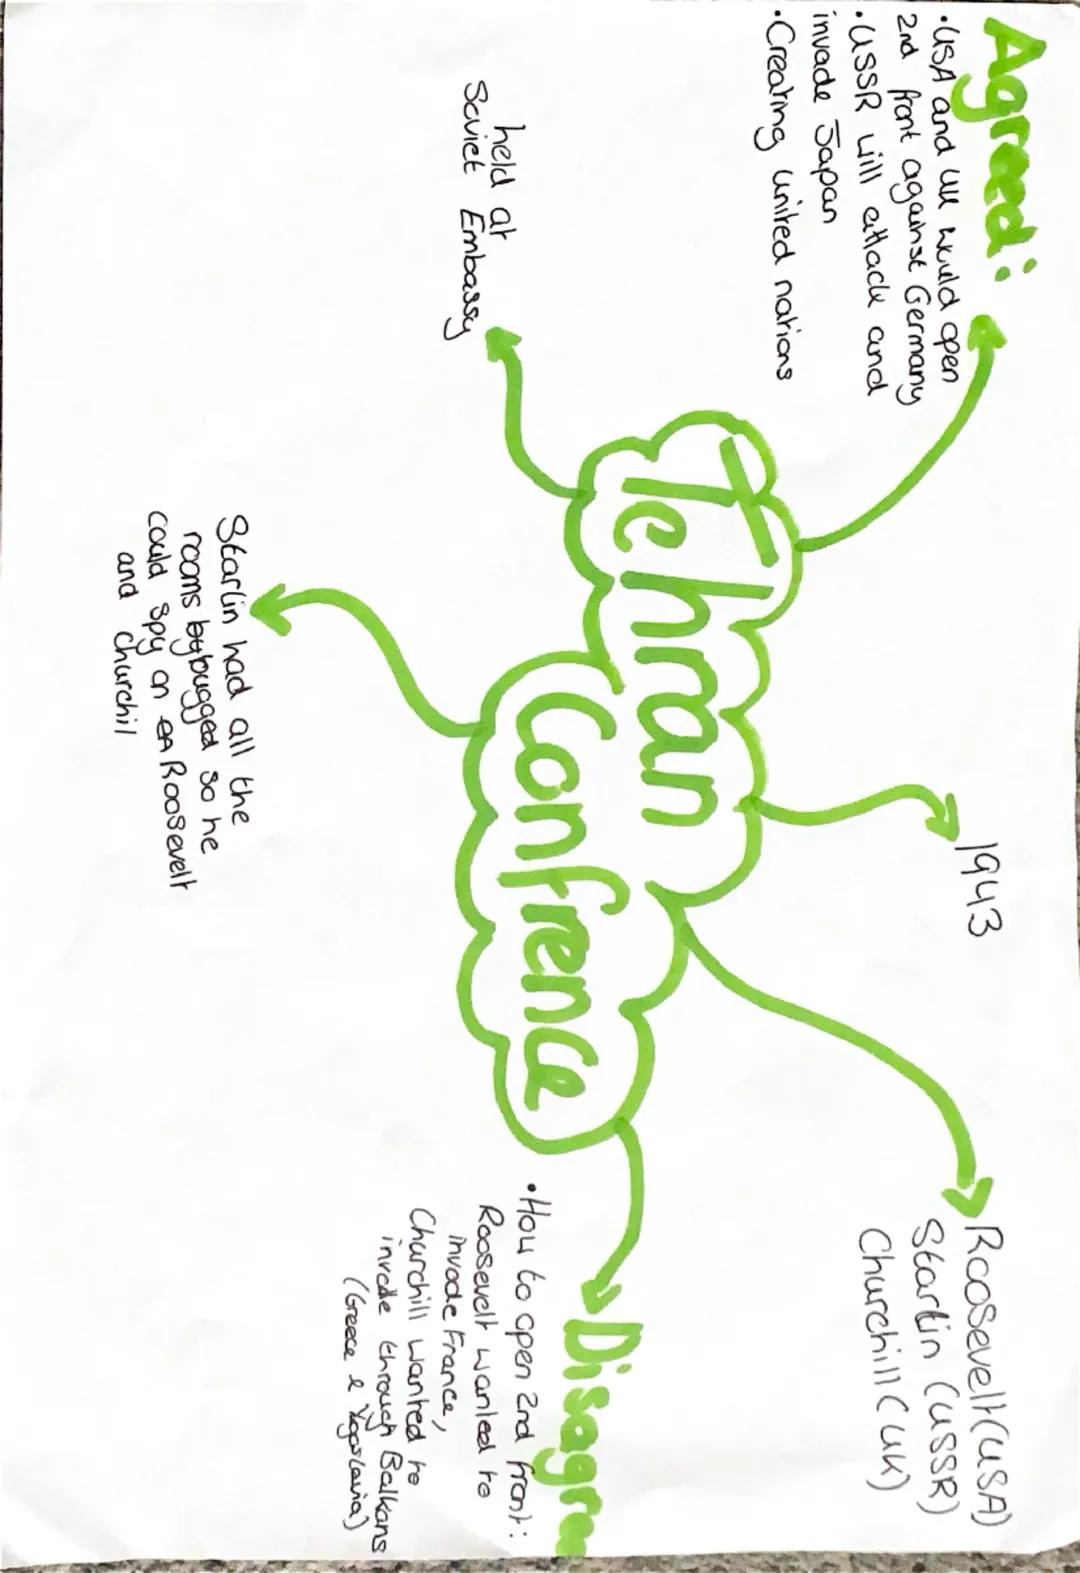 Agreed:
•USA and UK would open
2nd front against Germany
•USSR will attack and
invade Japan
•Creating united nations
held at
Soviet Embassy
Tehran
Confrence
1943
Roosevelt(USA)
Starlin (USSR)
Churchill(UK)
Starlin had all the
rooms bugged so he
could spy on Roosevelt
and churchil
Disagre
•How to open 2nd front:
Roosevelt wanted to
invade France,
Churchill wanted to
invade through Balkans
(Greece & Yugoslavia)